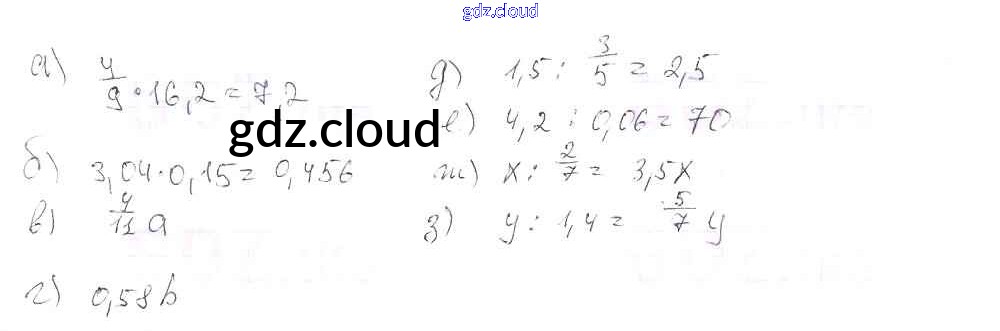 gdz.cloud
а) 4/9 · 16,2 = 7,2
б) 3,04 · 0,15 = 0,456
в) 4/11 a
г) 0,58 b
д) 1,5 : 3/5 = 2,5
е) 4,2 : 0,06 = 70
ж) x : 2/7 = 3,5x
з) y : 1,4 = 5/7 y
gdz.cloud